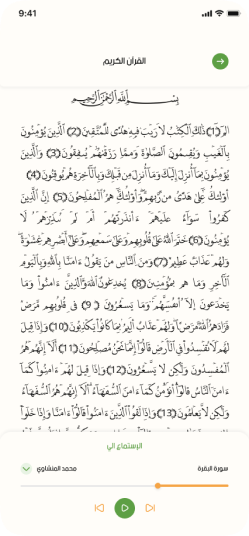 9:41
القرآن الكريم
بِسْمِ اللَّهِ الرَّحْمَٰنِ الرَّحِيمِ
الم (1) ذَلِكَ الْكِتَابُ لَا رَيْبَ فِيهِ هُدًى لِلْمُتَّقِينَ (2) الَّذِينَ يُؤْمِنُونَ
بِالْغَيْبِ وَيُقِيمُونَ الصَّلَوٰةَ وَمِمَّا رَزَقْنَٰهُمْ يُنفِقُونَ (3) وَالَّذِينَ
يُؤْمِنُونَ بِمَا أُنزِلَ إِلَيْكَ وَمَا أُنزِلَ مِن قَبْلِكَ وَبِالْآخِرَةِ هُمْ يُوقِنُونَ (4)
أُولَٰئِكَ عَلَىٰ هُدًى مِّن رَّبِّهِمْ وَأُولَٰئِكَ هُمُ الْمُفْلِحُونَ (5) إِنَّ الَّذِينَ
كَفَرُوا سَوَاءٌ عَلَيْهِمْ ءَأَنذَرْتَهُمْ أَمْ لَمْ تُنذِرْهُمْ لَا
يُؤْمِنُونَ (6) خَتَمَ اللَّهُ عَلَىٰ قُلُوبِهِمْ وَعَلَىٰ سَمْعِهِمْ وَعَلَىٰ أَبْصَٰرِهِمْ غِشَٰوَةٌ
وَلَهُمْ عَذَابٌ عَظِيمٌ (7) وَمِنَ النَّاسِ مَن يَقُولُ ءَامَنَّا بِاللَّهِ وَبِالْيَوْمِ
الْآخِرِ وَمَا هُم بِمُؤْمِنِينَ (8) يُخَٰدِعُونَ اللَّهَ وَالَّذِينَ ءَامَنُوا وَمَا
يَخْدَعُونَ إِلَّا أَنفُسَهُمْ وَمَا يَشْعُرُونَ (9) فِي قُلُوبِهِم مَّرَضٌ
فَزَادَهُمُ اللَّهُ مَرَضًا وَلَهُمْ عَذَابٌ أَلِيمٌ بِمَا كَانُوا يَكْذِبُونَ (10) وَإِذَا قِيلَ
لَهُمْ لَا تُفْسِدُوا فِي الْأَرْضِ قَالُوا إِنَّمَا نَحْنُ مُصْلِحُونَ (11) أَلَا إِنَّهُمْ هُمُ
الْمُفْسِدُونَ وَلَٰكِن لَّا يَشْعُرُونَ (12) وَإِذَا قِيلَ لَهُمْ ءَامِنُوا كَمَا
ءَامَنَ النَّاسُ قَالُوا أَنُؤْمِنُ كَمَا ءَامَنَ السُّفَهَاءُ أَلَا إِنَّهُمْ هُمُ السُّفَهَاءُ
وَلَٰكِن لَّا يَعْلَمُونَ (13) وَإِذَا لَقُوا الَّذِينَ ءَامَنُوا قَالُوا ءَامَنَّا وَإِذَا خَلَوْا
الإستماع الي
سورة البقرة
محمد المنشاوي